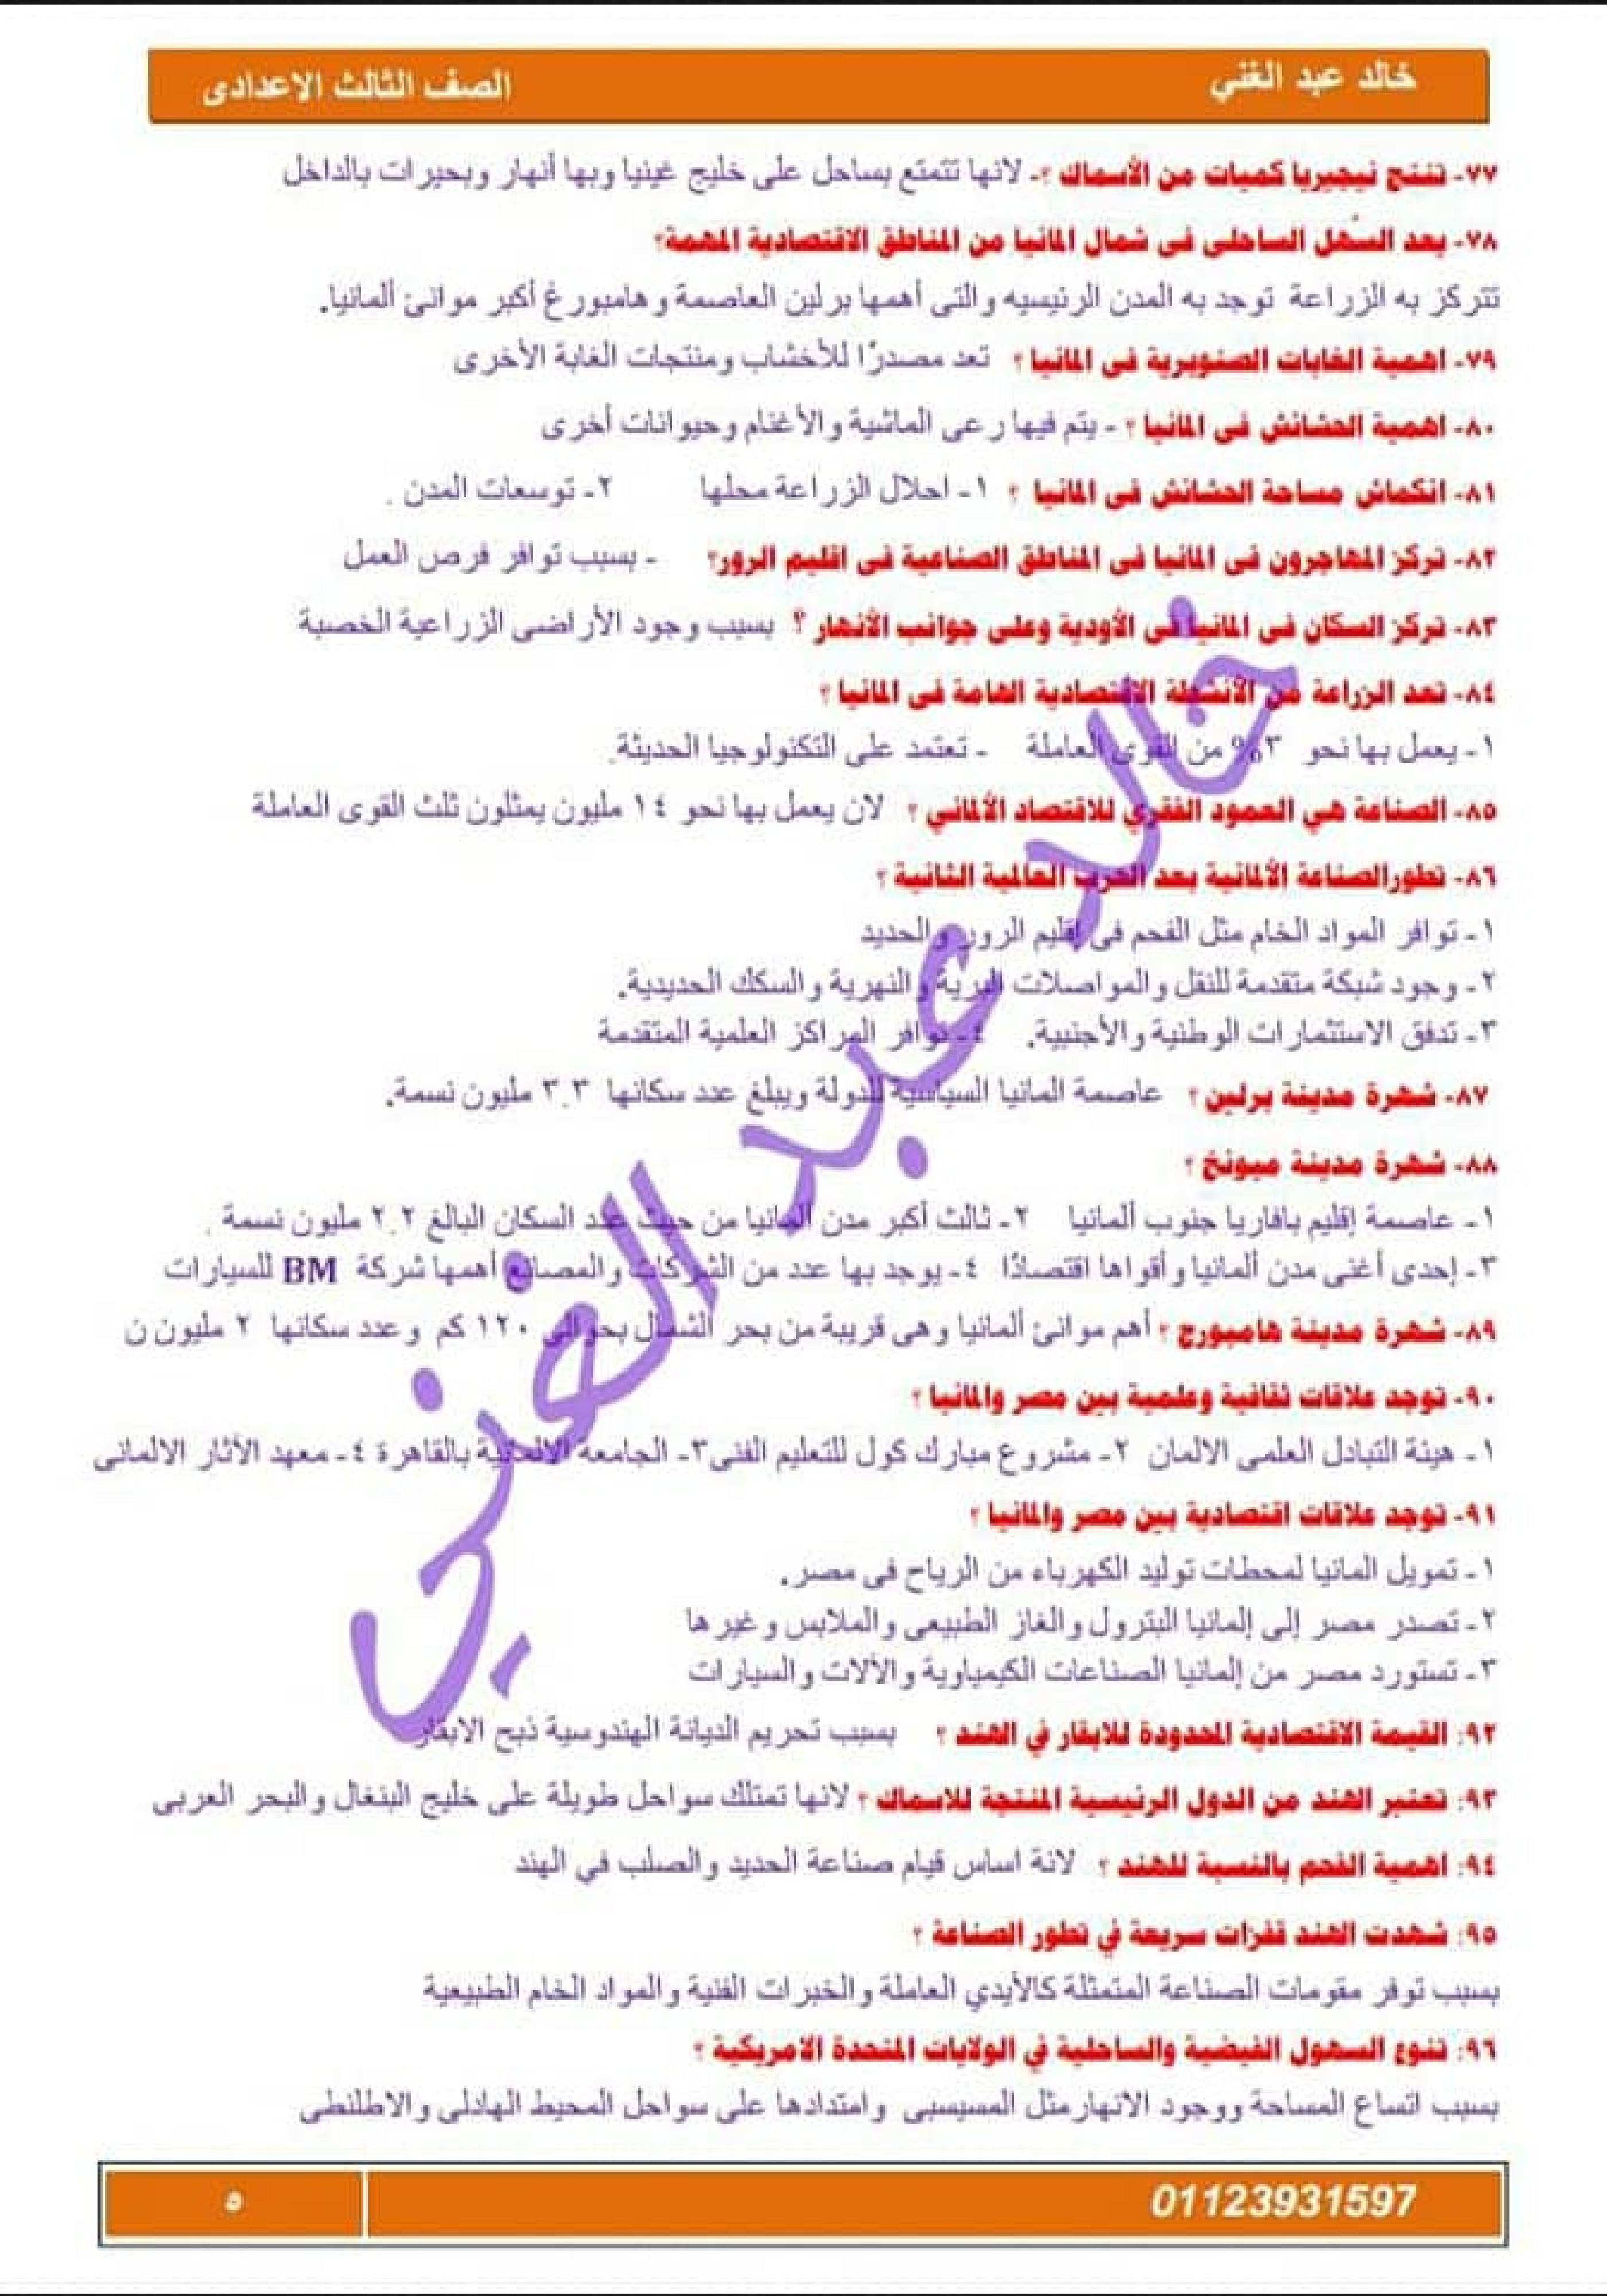 خالد عبد الغني
الصف الثالث الاعدادى
٧٧- تنتج نيجيريا كميات من الأسماك ؟- لانها تتمتع بساحل على خليج غينيا وبها أنهار وبحيرات بالداخل
٧٨- يعد السهل الساحلى فى شمال المانيا من المناطق الاقتصادية المهمة؟
تتركز به الزراعة توجد به المدن الرئيسيه والتى أهمها برلين العاصمة وهامبورغ أكبر موانئ ألمانيا.
٧٩- اهمية الغابات الصنوبرية فى المانيا ؟ تعد مصدرًا للأخشاب ومنتجات الغابة الأخرى
٨٠- اهمية الحشائش فى المانيا ؟ - يتم فيها رعى الماشية والأغنام وحيوانات أخرى
٨١- انكماش مساحة الحشائش فى المانيا ؟ ١- احلال الزراعة محلها ٢- توسعات المدن .
٨٢- تركز المهاجرون فى المانيا فى المناطق الصناعية فى اقليم الرور؟ - بسبب توافر فرص العمل
٨٣- تركز السكان فى المانيا فى الأودية وعلى جوانب الأنهار ؟ بسبب وجود الأراضى الزراعية الخصبة
٨٤- تعد الزراعة من الأنشطة الاقتصادية الهامة فى المانيا ؟
١- يعمل بها نحو ٣% من القوى العاملة - تعتمد على التكنولوجيا الحديثة.
٨٥- الصناعة هي العمود الفقري للاقتصاد الألماني ؟ لان يعمل بها نحو ١٤ مليون يمثلون ثلث القوى العاملة
٨٦- تطورالصناعة الألمانية بعد الحرب العالمية الثانية ؟
١- توافر المواد الخام مثل الفحم فى إقليم الرور والحديد
٢- وجود شبكة متقدمة للنقل والمواصلات البرية والنهرية والسكك الحديدية.
٣- تدفق الاستثمارات الوطنية والأجنبية. ٤- توافر المراكز العلمية المتقدمة
٨٧- شهرة مدينة برلين ؟ عاصمة المانيا السياسية للدولة ويبلغ عدد سكانها ٣.٣ مليون نسمة.
٨٨- شهرة مدينة ميونخ ؟
١- عاصمة إقليم بافاريا جنوب ألمانيا ٢- ثالث أكبر مدن ألمانيا من حيث عدد السكان البالغ ٢.٢ مليون نسمة .
٣- إحدى أغنى مدن ألمانيا وأقواها اقتصادًا ٤- يوجد بها عدد من الشركات والمصانع أهمها شركة BM للسيارات
٨٩- شهرة مدينة هامبورج ؟ أهم موانئ ألمانيا وهى قريبة من بحر الشمال بحوالى ١٢٠ كم وعدد سكانها ٢ مليون ن
٩٠- توجد علاقات ثقافية وعلمية بين مصر والمانيا ؟
١- هيئة التبادل العلمى الالمان ٢- مشروع مبارك كول للتعليم الفنى٣- الجامعة الالمانية بالقاهرة ٤- معهد الآثار الالمانى
٩١- توجد علاقات اقتصادية بين مصر والمانيا ؟
١- تمويل المانيا لمحطات توليد الكهرباء من الرياح فى مصر.
٢- تصدر مصر إلى إلمانيا البترول والغاز الطبيعى والملابس وغيرها
٣- تستورد مصر من إلمانيا الصناعات الكيمياوية والآلات والسيارات
٩٢: القيمة الاقتصادية المحدودة للابقار في الهند ؟ بسبب تحريم الديانة الهندوسية ذبح الابقار
٩٣: تعتبر الهند من الدول الرئيسية المنتجة للاسماك ؟ لانها تمتلك سواحل طويلة على خليج البنغال والبحر العربى
٩٤: اهمية الفحم بالنسبة للهند ؟ لانة اساس قيام صناعة الحديد والصلب في الهند
٩٥: شهدت الهند قفزات سريعة في تطور الصناعة ؟
بسبب توفر مقومات الصناعة المتمثلة كالأيدي العاملة والخبرات الفنية والمواد الخام الطبيعية
٩٦: تنوع السهول الفيضية والساحلية في الولايات المتحدة الامريكية ؟
بسبب اتساع المساحة ووجود الانهارمثل المسيسبى وامتدادها على سواحل المحيط الهادلى والاطلنطى
خالد عبد الغني
01123931597
٥